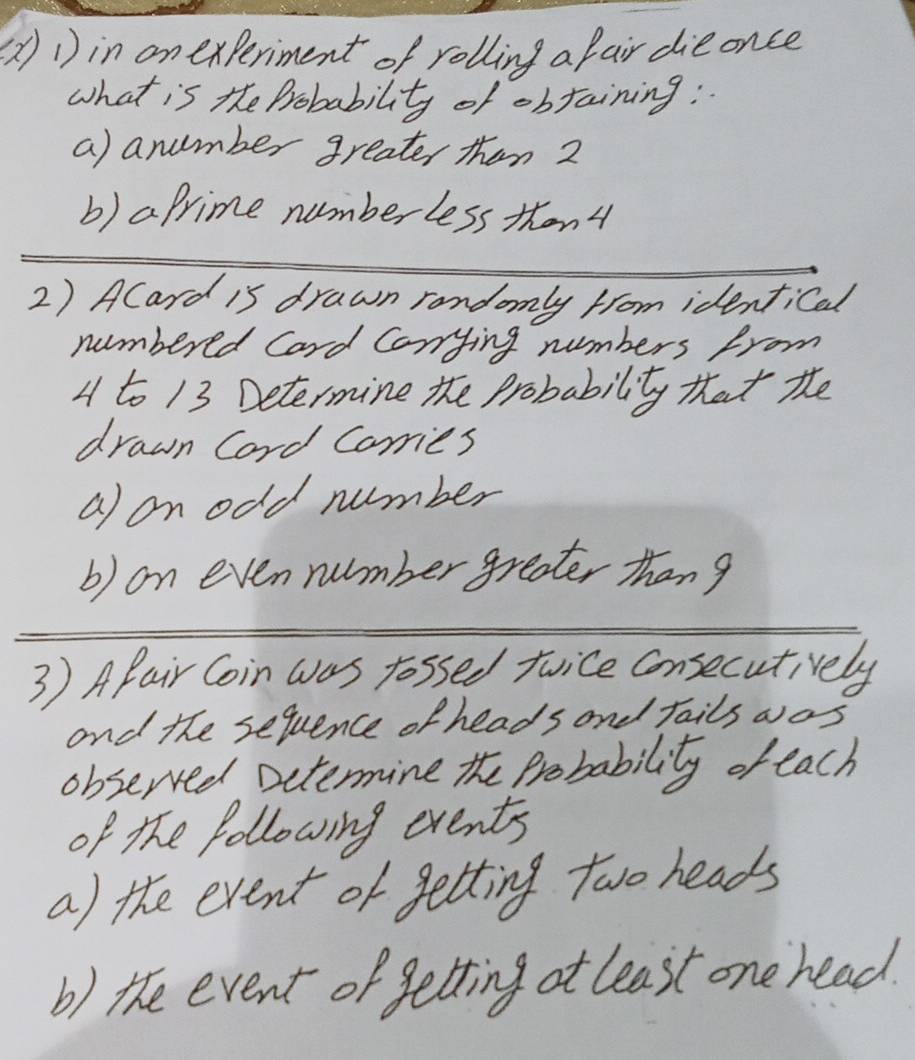 Ex) 1) in an experiment of rolling a fair die once
what is the Probability of obtaining :.
a) a number greater than 2
b) a Prime number less than 4
2) A Card is drawn randomly from identical
numbered Card Carrying numbers from
4 to 13 Determine the Probability that the
drawn Card Carries
a) an odd number
b) an even number greater than 9
3) A fair Coin was tossed twice Consecutively
and the sequence of heads and Tails was
observed Determine the Probability of each
of the following events
a) the event of getting two heads
b) the event of getting at least one head.